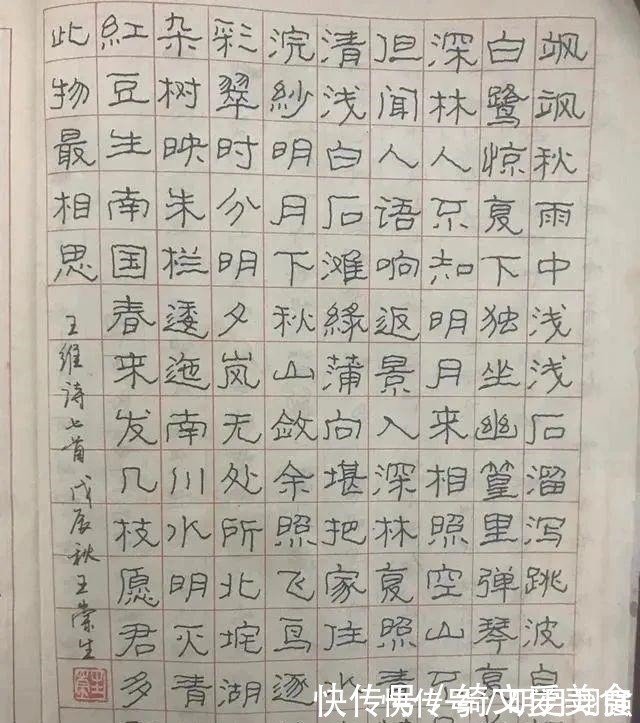 飒飒秋雨中浅浅石溜泻跳波自
白鹭惊复下独坐幽篁里弹琴复
深林人不知明月来相照空山不
但闻人语响返景入深林复照青
清浅白石滩綠蒲向堪把家住水
浣紗明月下秋山敛余照飞鸟逐
彩翠时分明夕岚无处所北垞湖
杂树映朱栏逶迤南川水明灭青
紅豆生南国春来发几枝愿君多
此物最相思
王维诗七首 戊辰秋王崇生